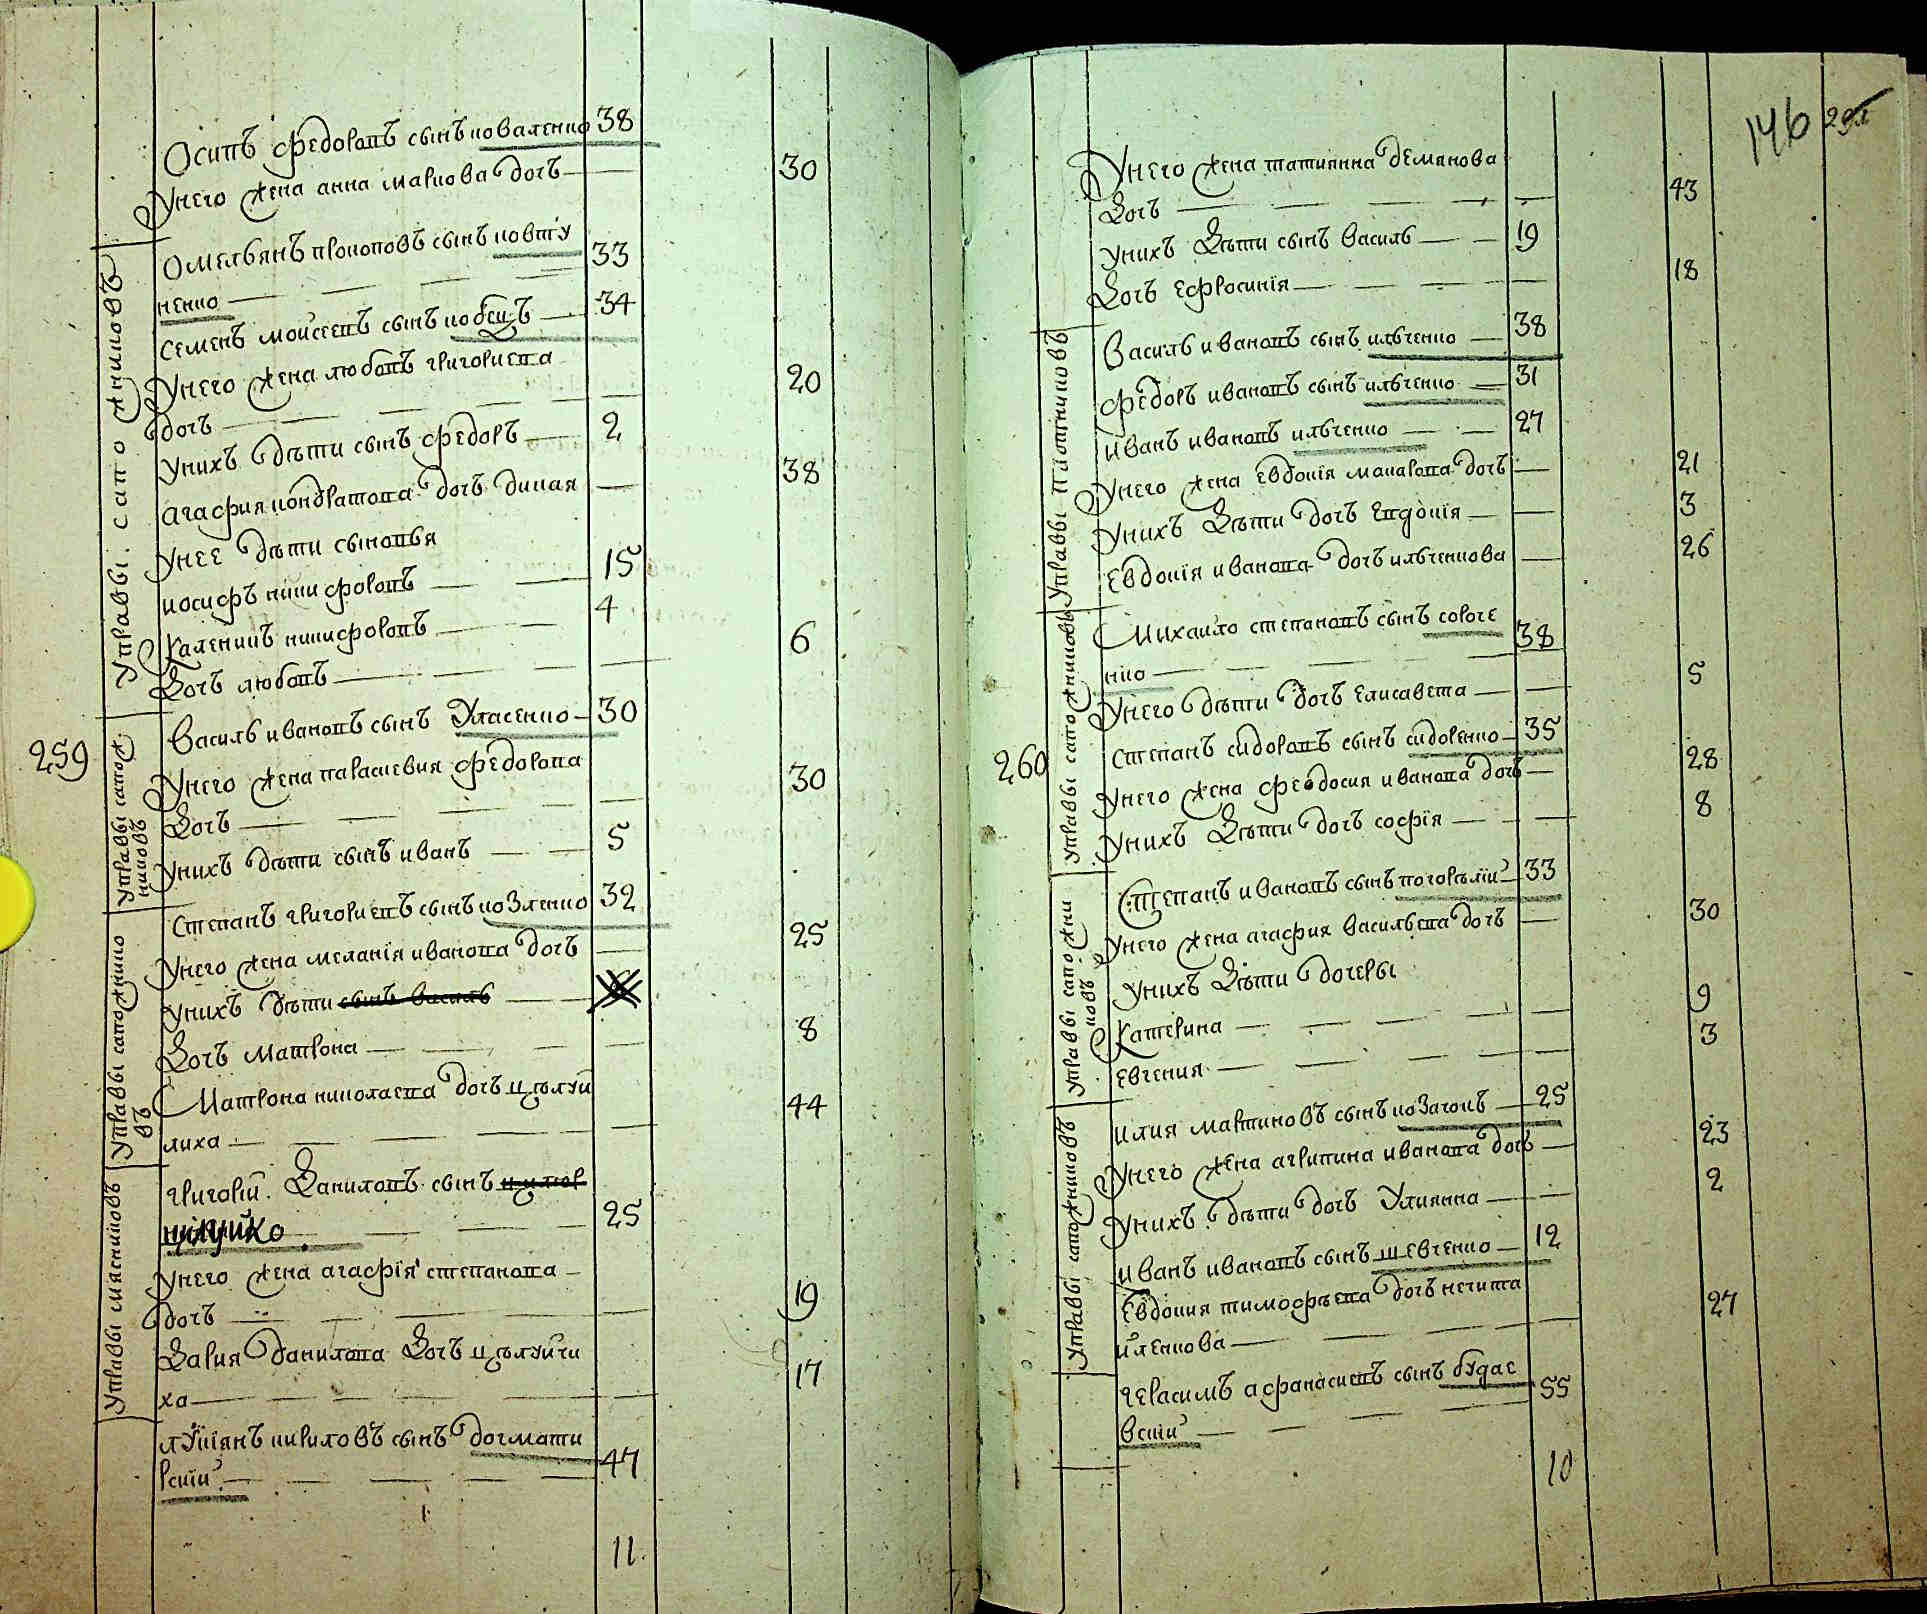 Осипъ федоровъ сынъ коваленко 38
Унего жена анна маркова дочь 30
Управы сапожниковъ
Омельянъ прокоповъ сынъ ковту 33
ненко
семенъ моисеевъ сынъ кобецъ 34
Унего жена любовъ григориева
дочь 20
Унихъ дѣти сынъ федоръ 2
агафия кондратова дочь дикая 38
Унее дѣти сыновья
иосифъ никифоровъ 15
каленикъ никифоровъ 4
Дочь любовъ 6
259
Управы сапож
никовъ
Василь ивановъ сынъ Уласенко 30
Унего жена параскевия федорова
Дочь 30
Унихъ дѣти сынъ иванъ 5
Управы сапожнико
въ
степанъ григориевъ сынъ козленко 32
Унего жена меланія иванова дочь 25
Унихъ дѣти сынъ василь
Дочь матрона 8
Матрона николаева дочь цѣлуй
лиха 44
Управы мясниковъ
григорій Даниловъ сынъ
цѣлуйко 25
Унего жена агафія степанова
дочь 19
Дария данилова Дочь цѣлуйчи
ха 17
лукіянъ кириловъ сынъ догмати
рскій 47
11
146
Унего жена татиянна демянова
Дочь 43
Унихъ Дѣти сынъ василь 19
Дочь ефросинія 18
Управы плотниковъ
Василь ивановъ сынъ ильченко 38
федоръ ивановъ сынъ ильченко 31
иванъ ивановъ ильченко 27
Унего жена евдокія макарова дочь 21
Унихъ Дѣти дочь евдокія 3
евдокія иванова дочь ильченкова 26
260
Управы сапожниковъ
Михаило степановъ сынъ сороче 38
нко
Унего дѣти дочь елисавета 5
степанъ сидоровъ сынъ сидоренко 35
Унего жена феодосия иванова дочь 28
Унихъ Дѣти дочь софія 8
Управы сапожни
ковъ
Степанъ ивановъ сынъ погорѣлій 33
Унего жена агафия васильева дочь 30
Унихъ Дѣти дочеры
катерина 9
евгения 3
Управы сапожниковъ
илия мартиновъ сынъ козачокъ 25
Унего жена агрипина иванова дочь 23
Унихъ дѣти дочь Улиянна 2
иванъ ивановъ сынъ шевченко 12
евдокия тимофѣева дочь нечита
йленкова 27
герасимъ афанасиевъ сынъ будас 55
вский
10